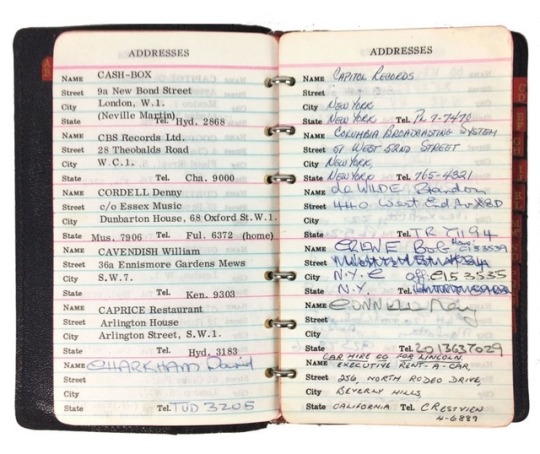 ADDRESSES
NAME CASH-BOX
Street 9a New Bond Street
City London, W.1.
State (Neville Martin) Tel. Hyd. 2868
NAME CBS Records Ltd.
Street 28 Theobalds Road
City W.C.1.
State Tel. Cha. 9000
NAME CORDELL Denny
Street c/o Essex Music
City Dunbarton House, 68 Oxford St.W.1.
State Mus, 7906 Tel. Ful. 6372 (home)
NAME CAVENDISH William
Street 36a Ennismore Gardens Mews
City S.W.7.
State Tel. Ken. 9303
NAME CAPRICE Restaurant
Street Arlington House
City Arlington Street, S.W.1.
State Tel. Hyd, 3183
NAME CHARKHAM David
Street
City
State Tel. TUD 3205
ADDRESSES
NAME CAPITOL RECORDS
Street
City NEW YORK
State NEW YORK Tel. PL 7-7470
NAME COLUMBIA BROADCASTING SYSTEM
Street 51 WEST 52ND STREET
City NEW YORK,
State NEW YORK Tel. 765-4321
NAME de WILDE Brandon
Street 440 West End Av
City
State Tel. TR 7 1194
NAME CREWE Bob
Street
City N.Y.C off. CI5 3535
State N.Y. Tel.
NAME
Street
City
State Tel. 201 3637029
CAR HIRE CO FOR LINCOLN
NAME EXECUTIVE RENT-A-CAR,
Street 256, NORTH RODEO DRIVE,
City BEVERLY HILLS
State CALIFORNIA Tel. CRESTVIEW
4-6887